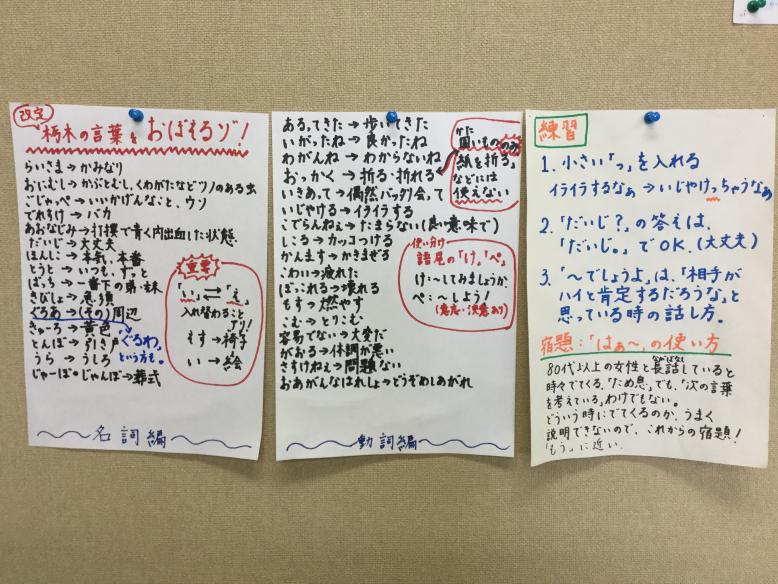 改定
栃木の言葉をおぼえるゾ!
らいさま→かみなり
おにむし→かぶとむし、くわがたなどツノのある虫
ごじゃっぺ→いいかげんなこと、ウソ
でれすけ→バカ
あおなじみ→打撲で青く内出血した状態
だいじ→大丈夫
ほんこ→本気、本番
とうと→いつも、ずっと
ばっち→一番下の弟・妹
きびしょ→急須
ぐろあ→(その)周辺
ぐるわ。
という方も。
きゃーろ→黄色
とんぼ→引き戸
うら→うしろ
じゃーぼ・じゃんぼ→葬式
重要
「い」⇄「え」
入れ替わること
アリ!
えす→椅子
い→絵
名詞編
あるってきた→歩いてきた
いがったね→良かったね
わがんね→わからないね
おっかく→折る・折れる
かた
固いもののみ
「紙を折る」
などには
使えない
いきあって→偶然バッタリ会って
いじやける→イライラする
こでらんねぇ→たまらない(良い意味で)
しこる→カッコつける
かんます→かきまぜる
こわい→疲れた
ぼっこれる→壊れる
もす→燃やす
こむ→とりこむ
容易でない→大変だ
がおる→体調が悪い
さすけねぇ→問題ない
おあがんなはれしょ→どうぞめしあがれ
使い分け
語尾の「け」「ぺ」
け:~してみましょうか
ぺ:~しよう!
(意志・決意あり)
動詞編
練習
1. 小さい「っ」を入れる
イライラするなぁ→いじやけっちゃうなぁ
2.「だいじ?」の答えは、
「だいじ。」でOK.(大丈夫)
3.「~でしょうよ」は、「相手が
ハイと肯定するだろうな」と
思っている時の話し方。
宿題:「はぁ~」の使い方
ながばなし
80代以上の女性と長話していると
時々でてくる。「ため息」でも、「次の言葉
を考えている」わけでもない。
どういう時にでてくるのか、うまく
説明できないので、これからの宿題!
「もう」に近い。